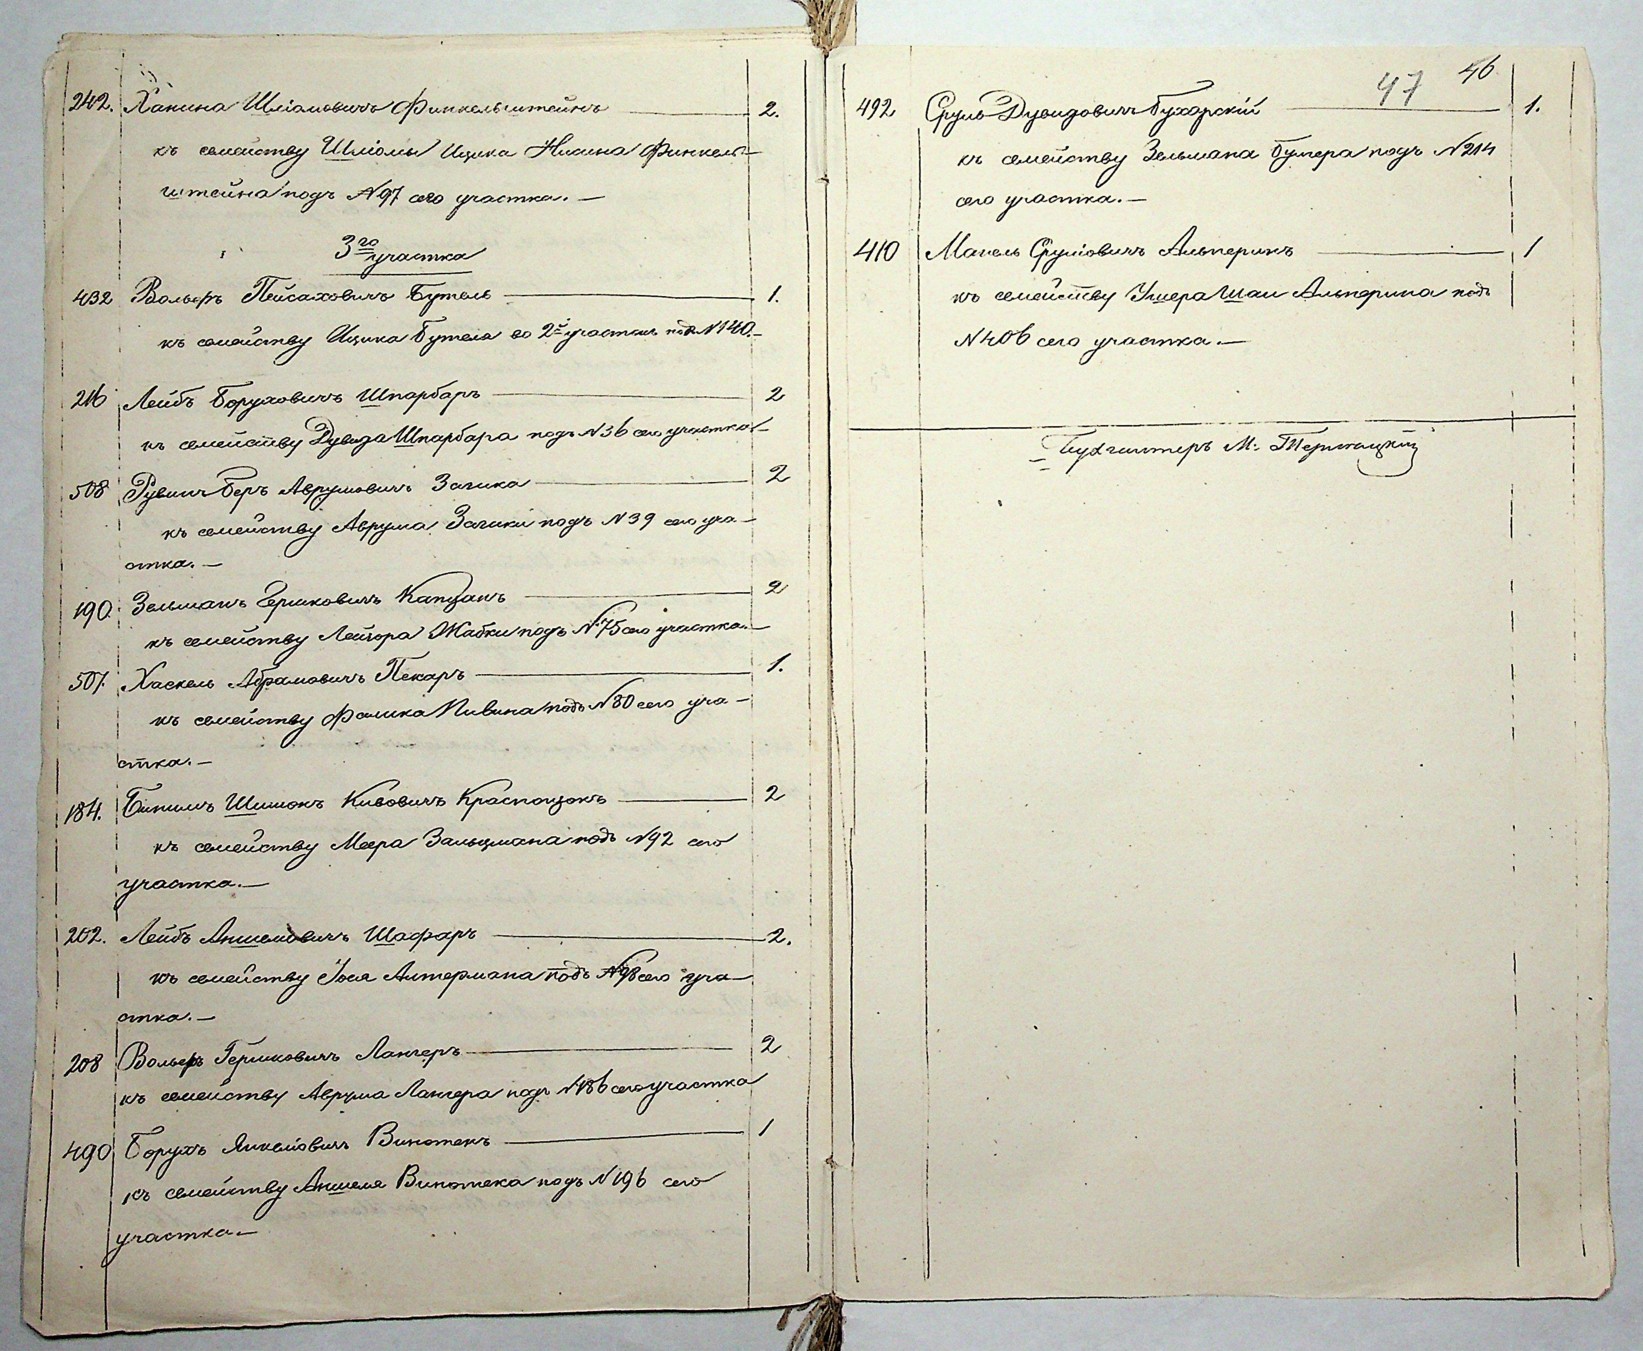 242. Ханина Шліомовичъ Финкельштейнъ — 2.
къ семейству Шліомы Ицика Нисина Финкель-
штейна подъ №97 сего участка. —
3го участка
432 Вольфъ Пейсаховичъ Бутель — 1.
къ семейству Ицика Бутеля во 2й участокъ подъ №140. —
216 Лейбъ Боруховичъ Шпарберъ — 2
къ семейству Дувида Шпарбера подъ №36 сего участка —
508 Рувинъ Беръ Аврумовичъ Загика — 2
къ семейству Аврума Загики подъ №39 сего уча-
стка. —
190. Зельманъ Гершковичъ Капцанъ — 2
къ семейству Лейзора Жабки подъ №75 сего участка. —
507. Хаскель Абрамовичъ Пекаръ — 1.
къ семейству Фалика Пивина подъ №80 сего уча-
стка. —
184. Шимонъ Кивовичъ — 2
къ семейству Меера Зальцмана подъ №92 сего
участка. —
202. Лейбъ Аншелiовичъ Шафаръ — 2.
къ семейству Іося Алтермана подъ №98 сего уча-
стка. —
208 Вольфъ Гершковичъ Лангеръ — 2
къ семейству Аврума Лангера подъ №186 сего участка
490 Борухъ Янкеліовичъ Винотекъ — 1
къ семейству Аншеля Винотека подъ №196 сего
участка —
47 46
492 Сруль Дувидовичъ Бухарскій — 1.
къ семейству Зельмана подъ №214
сего участка. —
410 Манель Сруліовичъ Альперинъ — 1
къ семейству Ушера Шаи Альперина подъ
№406 сего участка. —
Бухгалтеръ М.